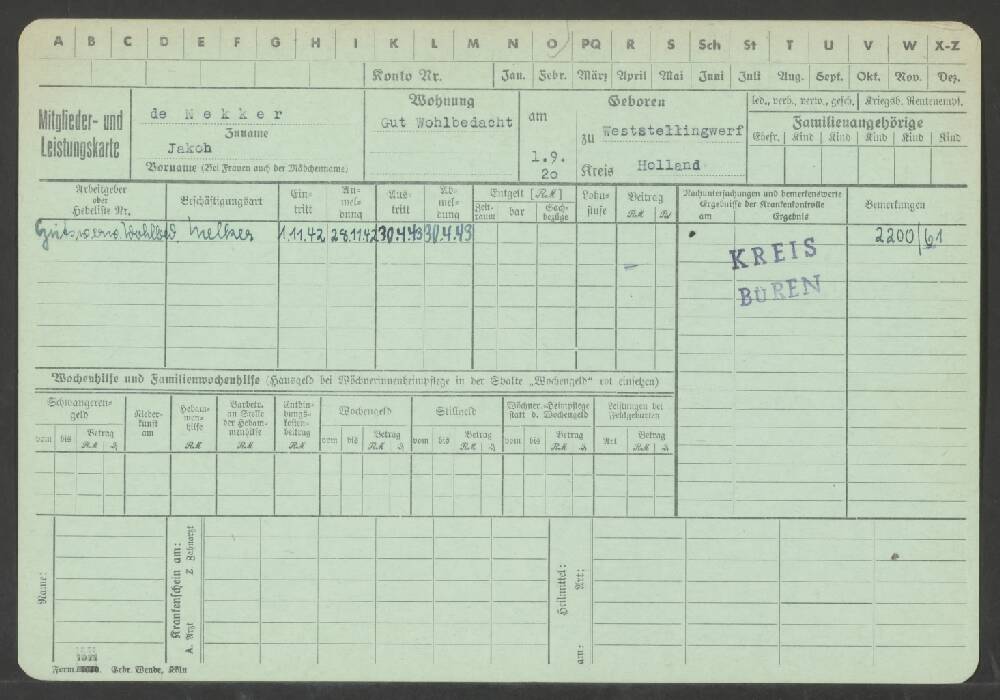 A B C D E F G H I K L M N O PQ R S Sch St T U V W X-Z
Konto Nr. Jan. Febr. März April Mai Juni Juli Aug. Sept. Okt. Nov. Dez.
Mitglieder- und
Leistungskarte
de Nekker
Zuname
Jakob
Vorname (Bei Frauen auch der Mädchenname)
Wohnung
Gut Wohlbedacht
Geboren
am
1.9.
20
zu Weststellingwerf
Kreis Holland
led., verh., verw., gesch. Kriegsb. Rentenempf.
Familienangehörige
Ehefr. Kind Kind Kind Kind Kind
Arbeitgeber
oder
Hebeliste Nr.
Beschäftigungsart
Ein-
tritt
An-
mel-
dung
Aus-
tritt
Ab-
mel-
dung
Entgelt [RM]
Zeit-
raum
bar
Sach-
bezüge
Lohn-
stufe
Beitrag
RM Pf
Nachuntersuchungen und bemerkenswerte
Ergebnisse der Krankenkontrolle
am Ergebnis
Bemerkungen
Melker 1.11.42 28.11.42 30.4.43 30.4.43
2200/61
KREIS
BÜREN
Wochenhilfe und Familienwochenhilfe (Hausgeld bei Wöchnerinnenheimpflege in der Spalte „Wochengeld“ rot einsetzen)
Schwangeren-
geld
vom bis Betrag
RM
Nieder-
kunft
am
Hebam-
men-
hilfe
RM
Barbetr.
an Stelle
der Hebam-
menhilfe
RM
Entbin-
dungs-
kosten-
beitrag
RM
Wochengeld
vom bis Betrag
RM
Stillgeld
vom bis Betrag
RM
Wöchner.-Heimpflege
statt d. Wochengeld
vom bis Betrag
RM
Leistungen bei
Fehlgeburten
Art Betrag
RM
Name:
Krankenschein am:
A. Arzt Z Zahnarzt
Heilmittel:
am: Art:
Form
Gebr. Wende, Köln